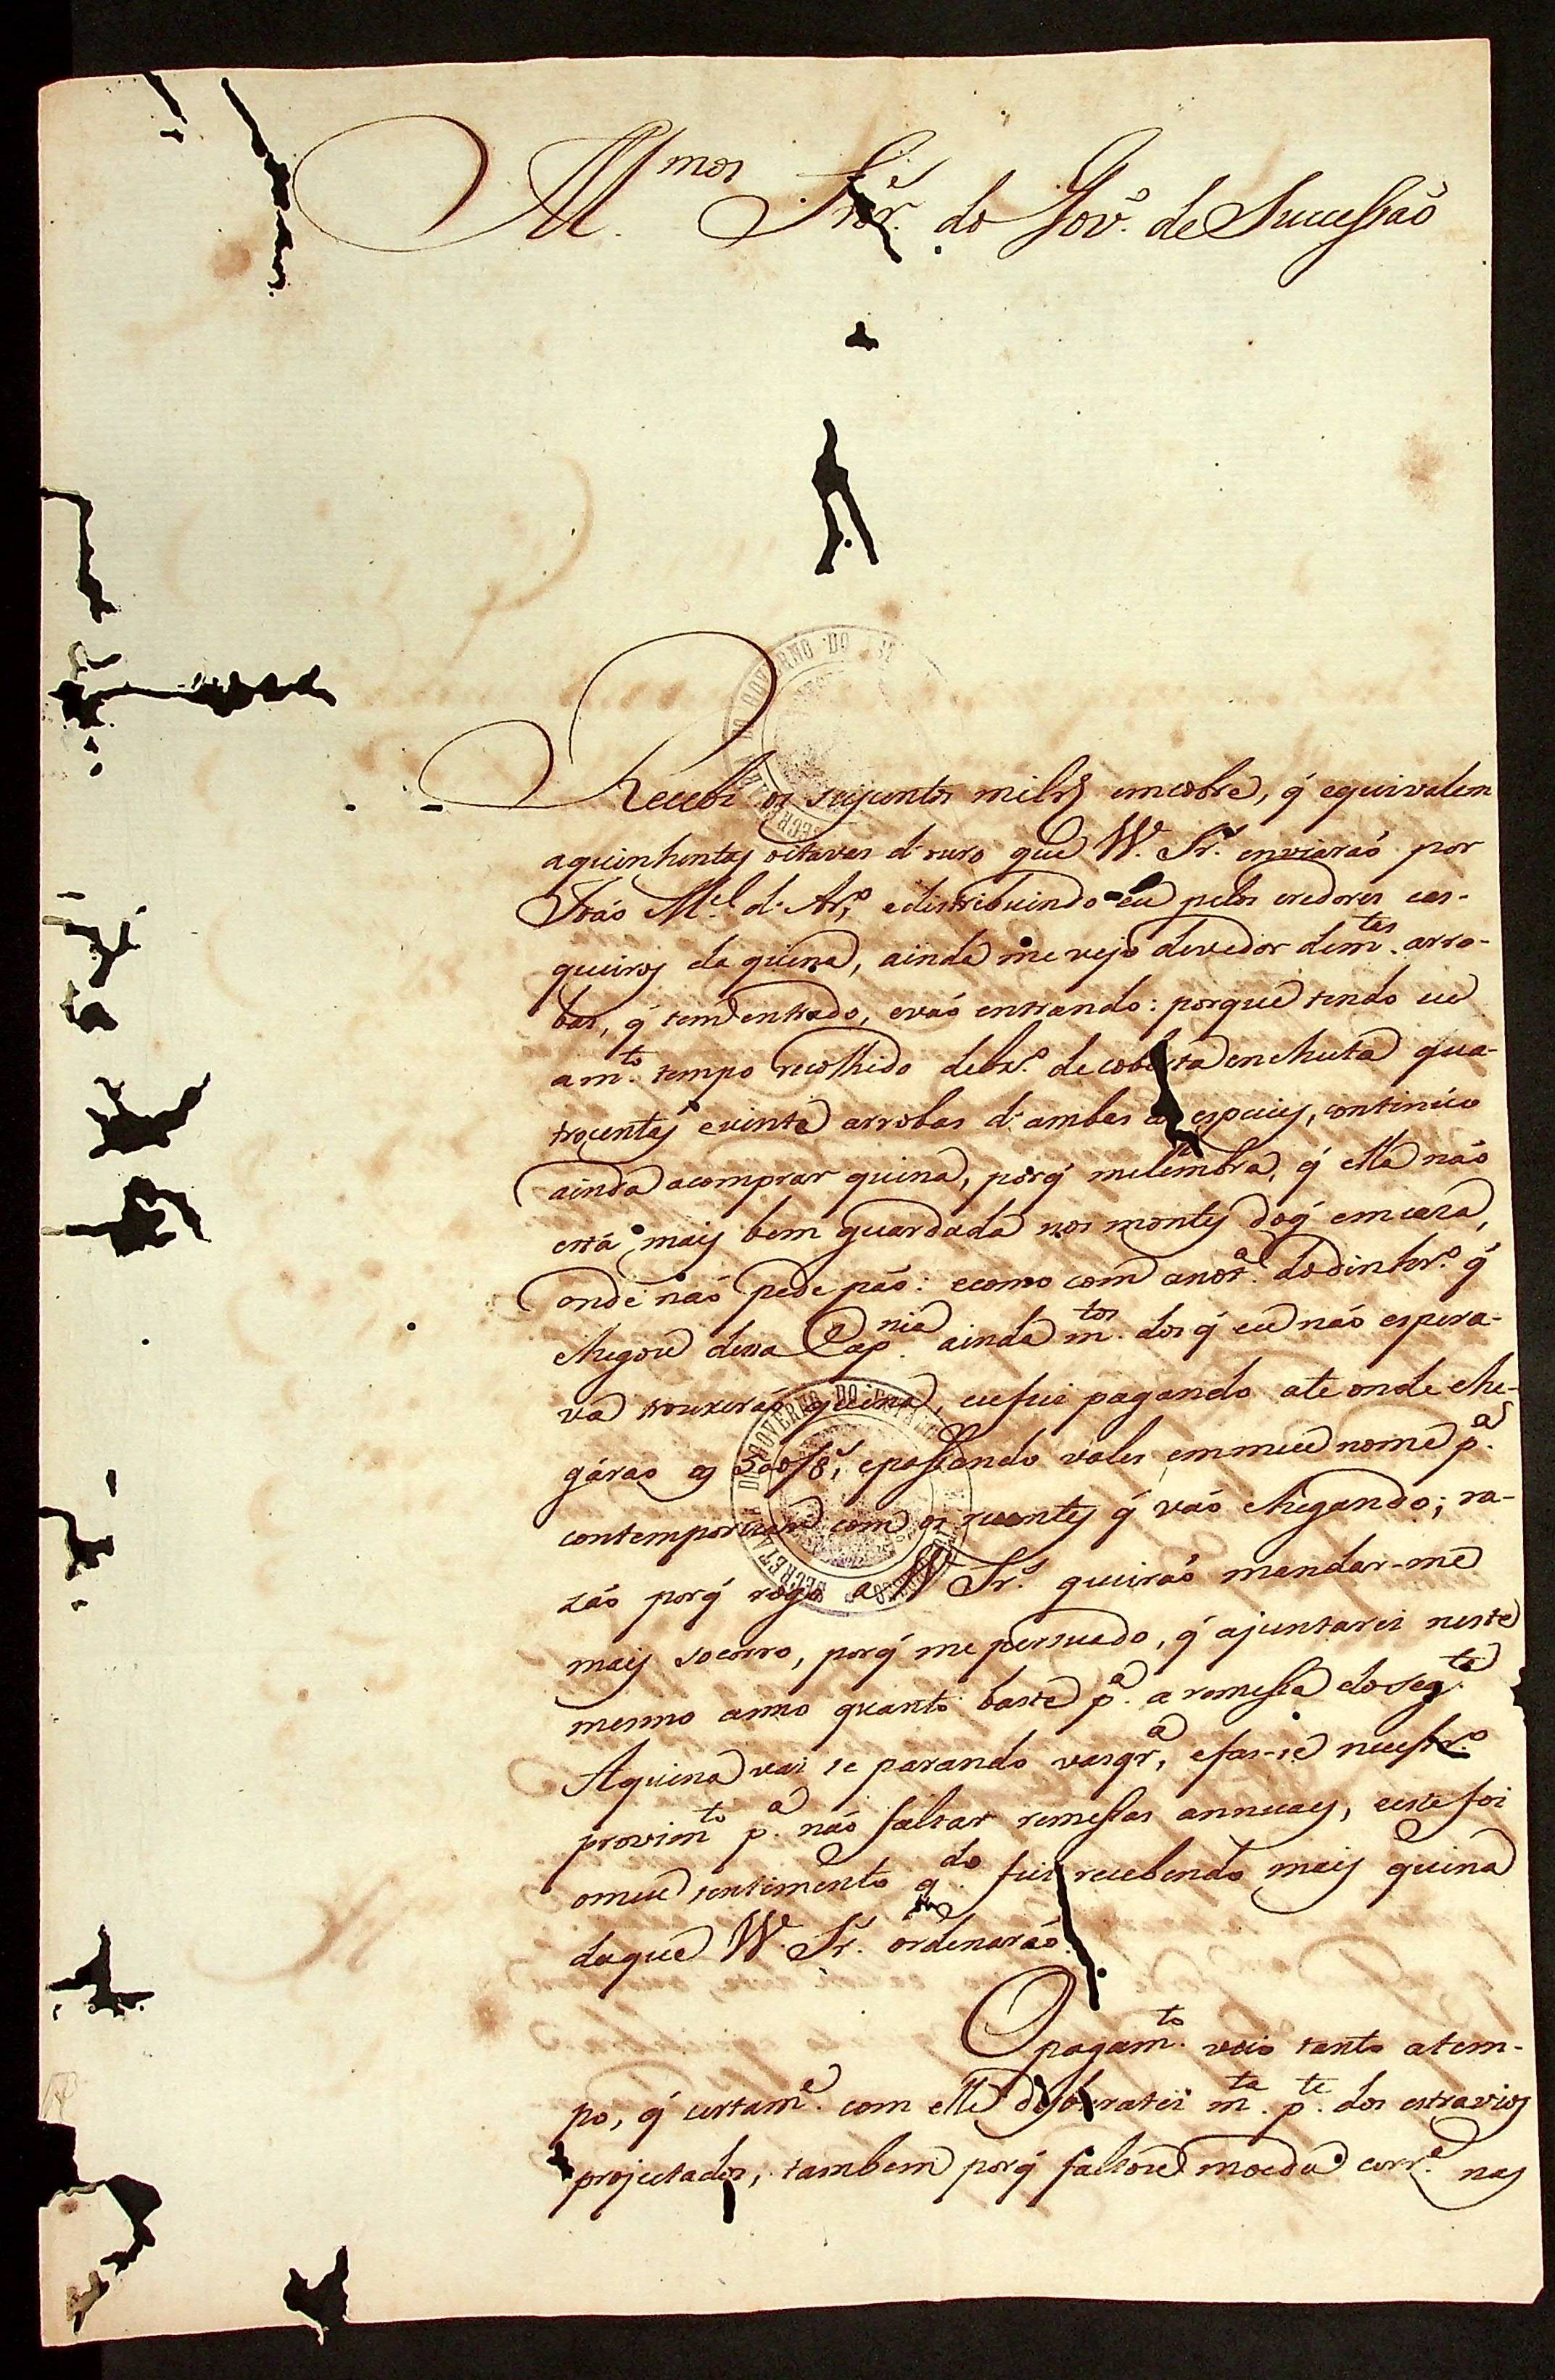 Ill.mos Snr.es do Gov.o de Sucessão
Recebi os seiscentos mil rs em cobre, q̃ equivalem
a quinhentas oitavas d'ouro que V.V. Sr.as enviarão por
João M.el d'Ar.o, e distribuindo-eu pelos credores cas-
queiros da quina, ainda me vejo devedor de m.tas arro-
bas, q̃ tem entrado, e vão entrando: porque tendo eu
a m.to tempo recolhido deb.xo de coberta enchuta qua-
trocentas e vinte arrobas d'ambas as especies, continúo
ainda a comprar quina, porq̃ me lembra, q̃ ella não
está mais bem guardada nos montes do q̃ em caza,
onde não pede pão: e como com a not.a do dinhr.o q̃
chegou dessa Cap.nia ainda m.tos dos q̃ eu não espera-
va trouxerão quina, eu fui pagando ate onde che-
gárão as 8.as, e passando vales em meu nome p.a
contemporizar com os q̃ vão chegando; ra-
zão porq̃ rogo a V.V. Sr.as queirão mandar-me
mais socorro, porq̃ me persuado, q̃ ajuntarei neste
mesmo anno quanto baste p.a a remessa do seg.te
A quina vai se parando vasqr.a, e fas-se necessr.o
provim.to p.a não faltar remessas annuaes, e este foi
o meu sentimento q.do fui recebendo mais quina
da que V.V. Sr.as ordenarão.
O pagam.to veio tanto a tem-
po, q̃ certam.e com elle desbaratei m.ta p.te dos estravios
projectados, tambem porq̃ faltou moeda corr.e nas
SECRETARIA DO GOVERNO DO
SECRETARIA DO GOVERNO DO ESTADO